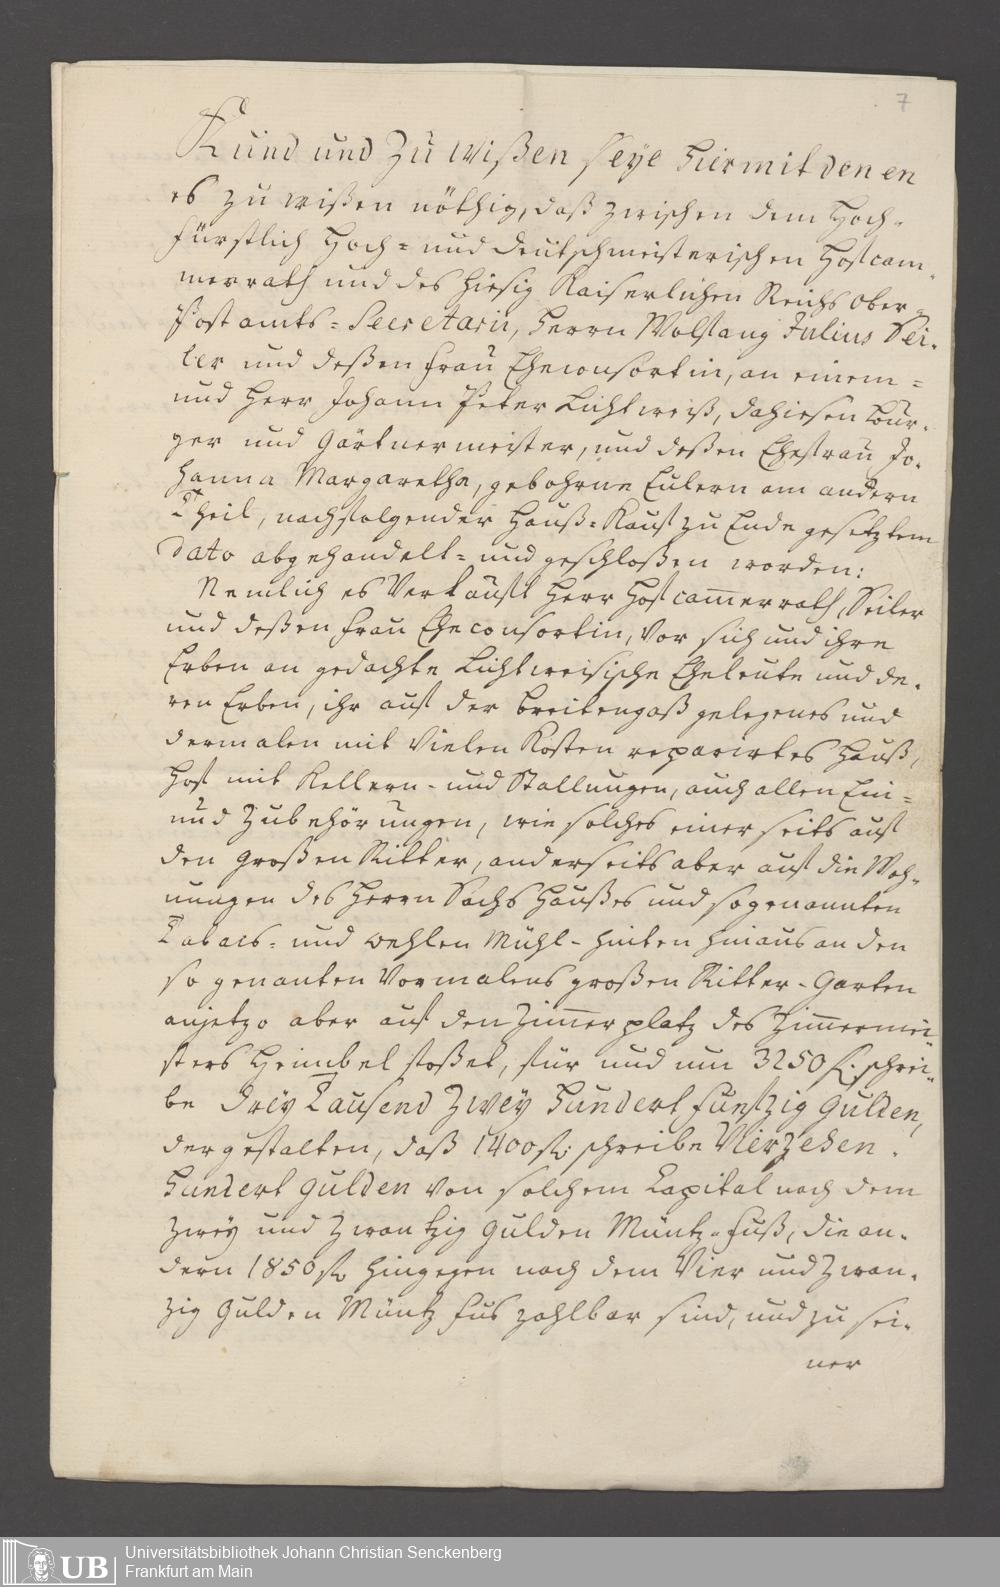 7
Kund und Zu wißen seye hiermit denen
es zu wißen nöthig, daß zwischen dem Hoch-
fürstlich Hoch- und deutschmeisterischen Hofcam-
merrath und des hiesig Kaiserlichen Reichs Ober-
Post amts-Secretarii, Herrn Wolfang Julius Sei-
ler und deßen Frau Eheconsortin, an einem-
und Herr Johann Peter Lichtweiß, dahiesen Bür-
ger und Gärtnermeister, und deßen Ehefrau Jo-
hanna Margaretha, gebohrne Eulern am andern
Theil, nachfolgender Hauß-Kauf zu Ende gesetztem
Dato abgehandelt- und geschloßen worden:
Nemlich es Verkauft Herr Hofcamerrath Seiler
und deßen Frau Eheconsortin, vor sich und ihre
Erben an gedachte Lichtweisische Eheleute und de-
ren Erben, ihr auf der breitengaß gelegenes und
dermalen mit vielen Kosten reparirtes Hauß,
Hof mit Kellern- und Stallungen, auch allen Ein-
und Zubehörungen, wie solches einer seits auf
den großen Ritter, anderseits aber auf die Woh-
nungen des Herrn Sachs Haußes und sogenannten
Tabacs- und oehlen Mühl- hinten hinaus an den
so genanten vormalens großen Ritter-Garten
anjetzo aber auf den Zimerplatz des Zimermei-
sters Heimbel stoßet, für und um 3250 fl. schrei-
be Dreÿ Tausend Zweÿ Hundert Funfzig Gulden,
dergestalten, daß 1400 fl. schreibe Vierzehen
Hundert Gulden von solchem Capital nach dem
Zweÿ und Zwantzig Gulden Müntz-Fuß, die an-
dern 1850 fl hingegen nach dem Vier und Zwan-
zig Gulden Müntz Fus zahlbar sind, und zu sei-
ner
UB
Universitätsbibliothek Johann Christian Senckenberg
Frankfurt am Main